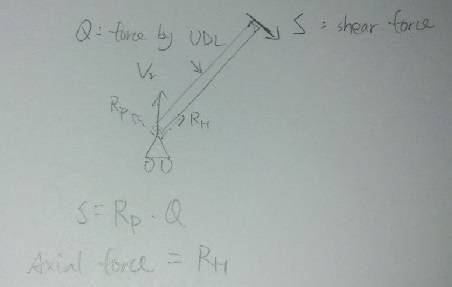 Q: force by UDL
S : shear force
V₂
Rp
RH
S = Rp - Q
Axial force = RH